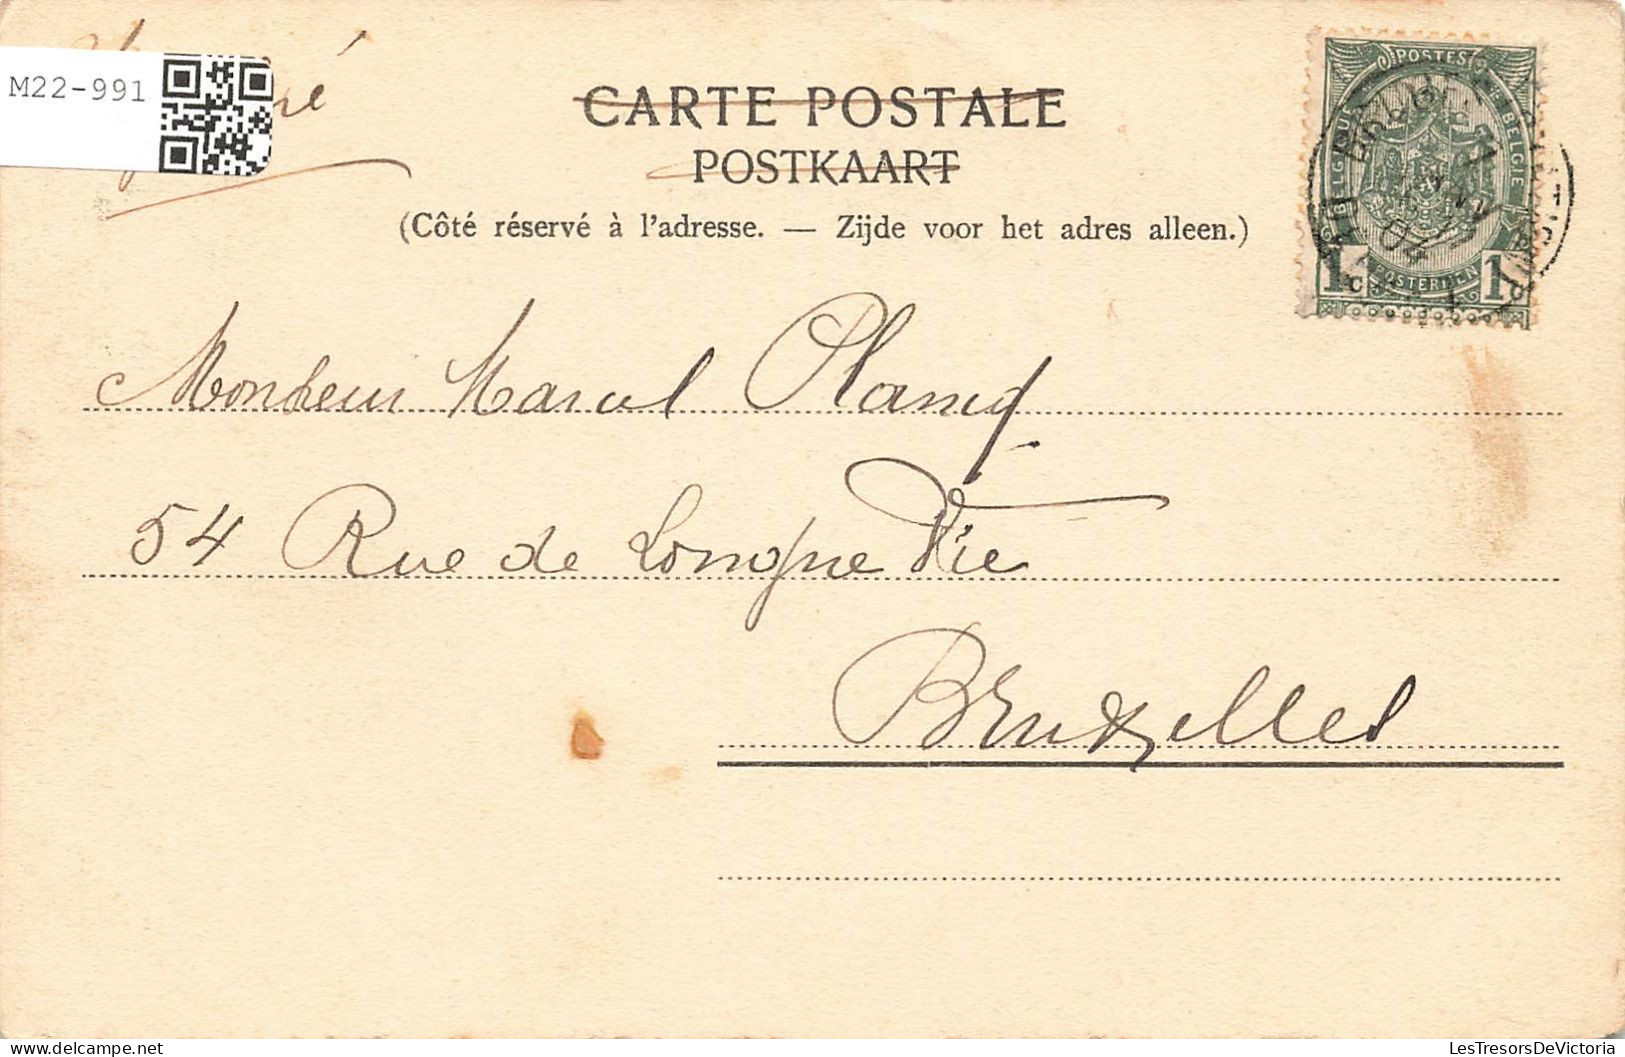 M22-991
CARTE POSTALE
POSTKAART
(Côté réservé à l'adresse. — Zijde voor het adres alleen.)
POSTES
BELGIQUE BELGIE
1 POSTERIJEN 1
Monsieur Marcel Plancq
54 Rue de Longue Vie
Bruxelles
LesTresorsDeVictoria
delcampe.net